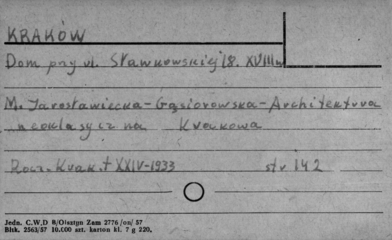 KRAKÓW
Dom przy ul. Sławkowskiej 18. XVIII w
M. Jarosławiecka-Gąsiorowska-Architektura
neoklasyczna Krakowa
Rocz. Krak. t XXIV-1933 str 142
Jedn. C.W.D 8/Olsztyn Zam 2776/on/57
Błhk. 2563/57 10.000 szt. karton kl. 7 g 220.